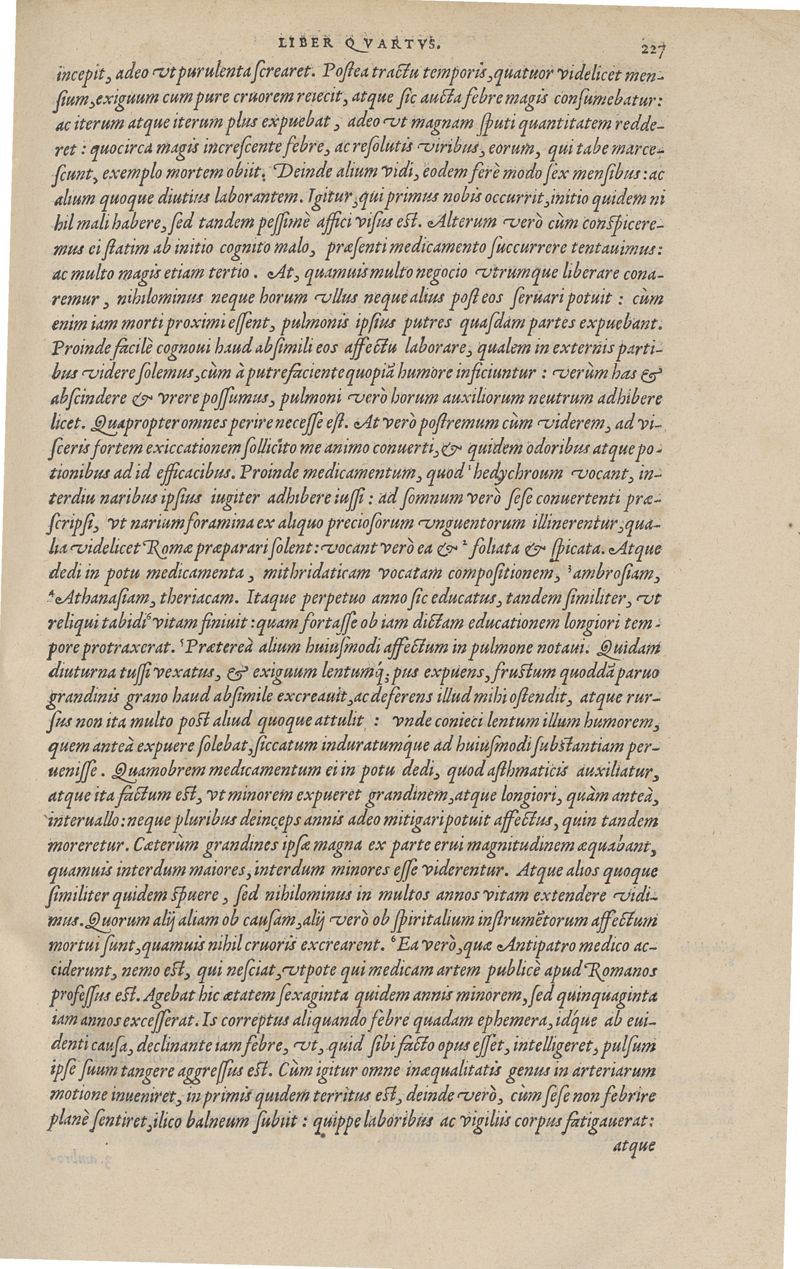 LIBER QVARTVS.
227
incepit, adeo vt purulenta screaret. Postea tractu temporis, quatuor videlicet men-
sium, exiguum cum pure cruorem reiecit, atque sic aucta febre magis consumebatur:
ac iterum atque iterum plus expuebat, adeo vt magnam sputi quantitatem redde-
ret : quocirca magis increscente febre, ac resolutis viribus, eorum, qui tabe marce-
scunt, exemplo mortem obiit. Deinde alium vidi, eodem ferè modo sex mensibus: ac
alium quoque diutius laborantem. Igitur, qui primus nobis occurrit, initio quidem ni
hil mali habere, sed tandem pessimè affici visus est. Alterum verò cùm conspicere-
mus ei statim ab initio cognito malo, præsenti medicamento succurrere tentauimus:
ac multo magis etiam tertio. At, quamuis multo negocio vtrumque liberare cona-
remur, nihilominus neque horum vllus neque alius post eos seruari potuit : cùm
enim iam morti proximi essent, pulmonis ipsius putres quasdam partes expuebant.
Proinde facilè cognoui haud absimili eos affectu laborare, qualem in externis parti-
bus videre solemus, cùm à putrefaciente quopiã humore inficiuntur : verùm has &
abscindere & vrere possumus, pulmoni verò horum auxiliorum neutrum adhibere
licet. Quapropter omnes perire necesse est. At verò postremum cùm viderem, ad vi-
sceris fortem exiccationem sollicito me animo conuerti, & quidem odoribus atque po-
tionibus ad id efficacibus. Proinde medicamentum, quod ¹hedychroum vocant, in-
terdiu naribus ipsius iugiter adhibere iussi : ad somnum verò sese conuertenti præ-
scripsi, vt narium foramina ex aliquo preciosorum vnguentorum illinerentur, qua-
lia videlicet Romæ præparari solent: vocant verò ea & ²foliata & spicata. Atque
dedi in potu medicamenta, mithridaticam vocatam compositionem, ³ambrosiam,
⁴Athanasiam, theriacam. Itaque perpetuo anno sic educatus, tandem similiter, vt
reliqui tabidi vitam finiuit: quam fortasse ob iam dictam educationem longiori tem-
pore protraxerat. ⁵Præterea alium huiusmodi affectum in pulmone notaui. Quidam
diuturna tussi vexatus, & exiguum lentumq́; pus expuens, frustum quoddã paruo
grandinis grano haud absimile excreauit, ac deferens illud mihi ostendit, atque rur-
sus non ita multo post aliud quoque attulit : vnde conieci lentum illum humorem,
quem anteà expuere solebat, siccatum induratumque ad huiusmodi substantiam per-
uenisse. Quamobrem medicamentum ei in potu dedi, quod asthmaticis auxiliatur,
atque ita factum est, vt minorem expueret grandinem, atque longiori, quàm anteà,
interuallo: neque pluribus deinceps annis adeo mitigari potuit affectus, quin tandem
moreretur. Cæterùm grandines ipsæ magna ex parte erui magnitudinem æquabant,
quamuis interdum maiores, interdum minores esse viderentur. Atque alios quoque
similiter quidem spuere, sed nihilominus in multos annos vitam extendere vidi-
mus. Quorum alij aliam ob causam, alij verò ob spiritalium instrumẽtorum affectum
mortui sunt, quamuis nihil cruoris excrearent. ⁶Ea verò, quæ Antipatro medico ac-
ciderunt, nemo est, qui nesciat, vtpote qui medicam artem publicè apud Romanos
professus est. Agebat hic ætatem sexaginta quidem annis minorem, sed quinquaginta
iam annos excesserat. Is correptus aliquando febre quadam ephemera, idque ab eui-
denti causa, declinante iam febre, vt, quid sibi facto opus esset, intelligeret, pulsum
ipse suum tangere aggressus est. Cùm igitur omne inæqualitatis genus in arteriarum
motione inueniret, in primis quidem territus est, deinde verò, cùm sese non febrire
planè sentiret, ilico balneum subiit : quippe laboribus ac vigiliis corpus fatigauerat:
atque